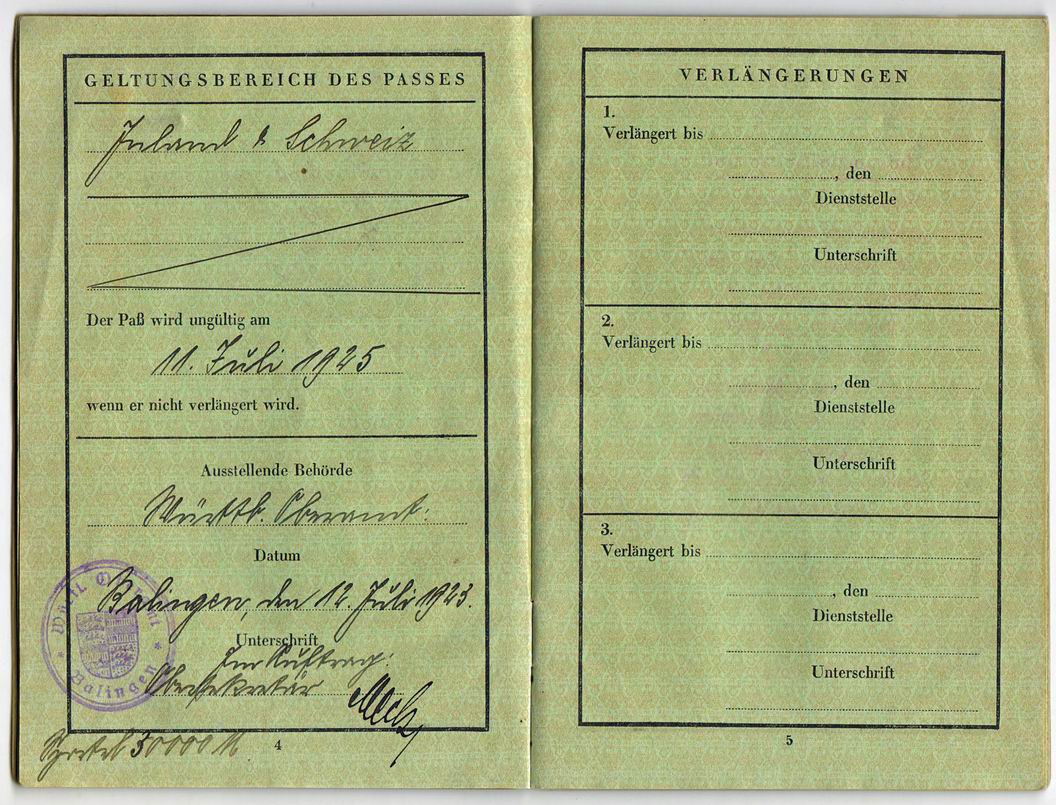 GELTUNGSBEREICH DES PASSES
Inland & Schweiz
Der Paß wird ungültig am
11. Juli 1925
wenn er nicht verlängert wird.
Ausstellende Behörde
Württb. Oberamt.
Datum
Balingen, den 12. Juli 1923.
Unterschrift
Im Auftrag:
Obersekretär
Württ. Oberamt
* Balingen *
30000 M
4
VERLÄNGERUNGEN
1.
Verlängert bis
, den
Dienststelle
Unterschrift
2.
Verlängert bis
, den
Dienststelle
Unterschrift
3.
Verlängert bis
, den
Dienststelle
Unterschrift
5